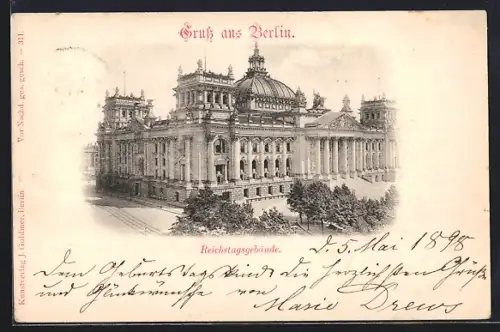 Gruß aus Berlin.
Kunstverlag J. Goldiner, Berlin Vor Nachd. ges. gesch. – 311.
Reichstagsgebäude.
D. 5. Mai 1898
Dem Geburtstagskinde die herzlichsten Grüße
und Glückwünsche von Marie Drews